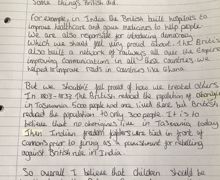 Some things British did.
For example, in India the British built hospitals to
improve healthcare and gave medicines to help people.
We are also responsible for introducing democracy
which we should feel very proud about. The British
also built a network of railways all over the Empire
improving communication in all these countries. We
helped to improve roads in countries like Ghana.
But we shouldn't feel proud of how we treated others
In 1803-1833 The British reduced the population of
in Tasmania 5000 people had once lived there but British
reduced the population to only 300 people. It is to
believe that no live in Tasmania today
Then Indian were tied in front of
cannons prior to firing as a punishment for rebelling
against British rule in India.
So overall I believe that children should be